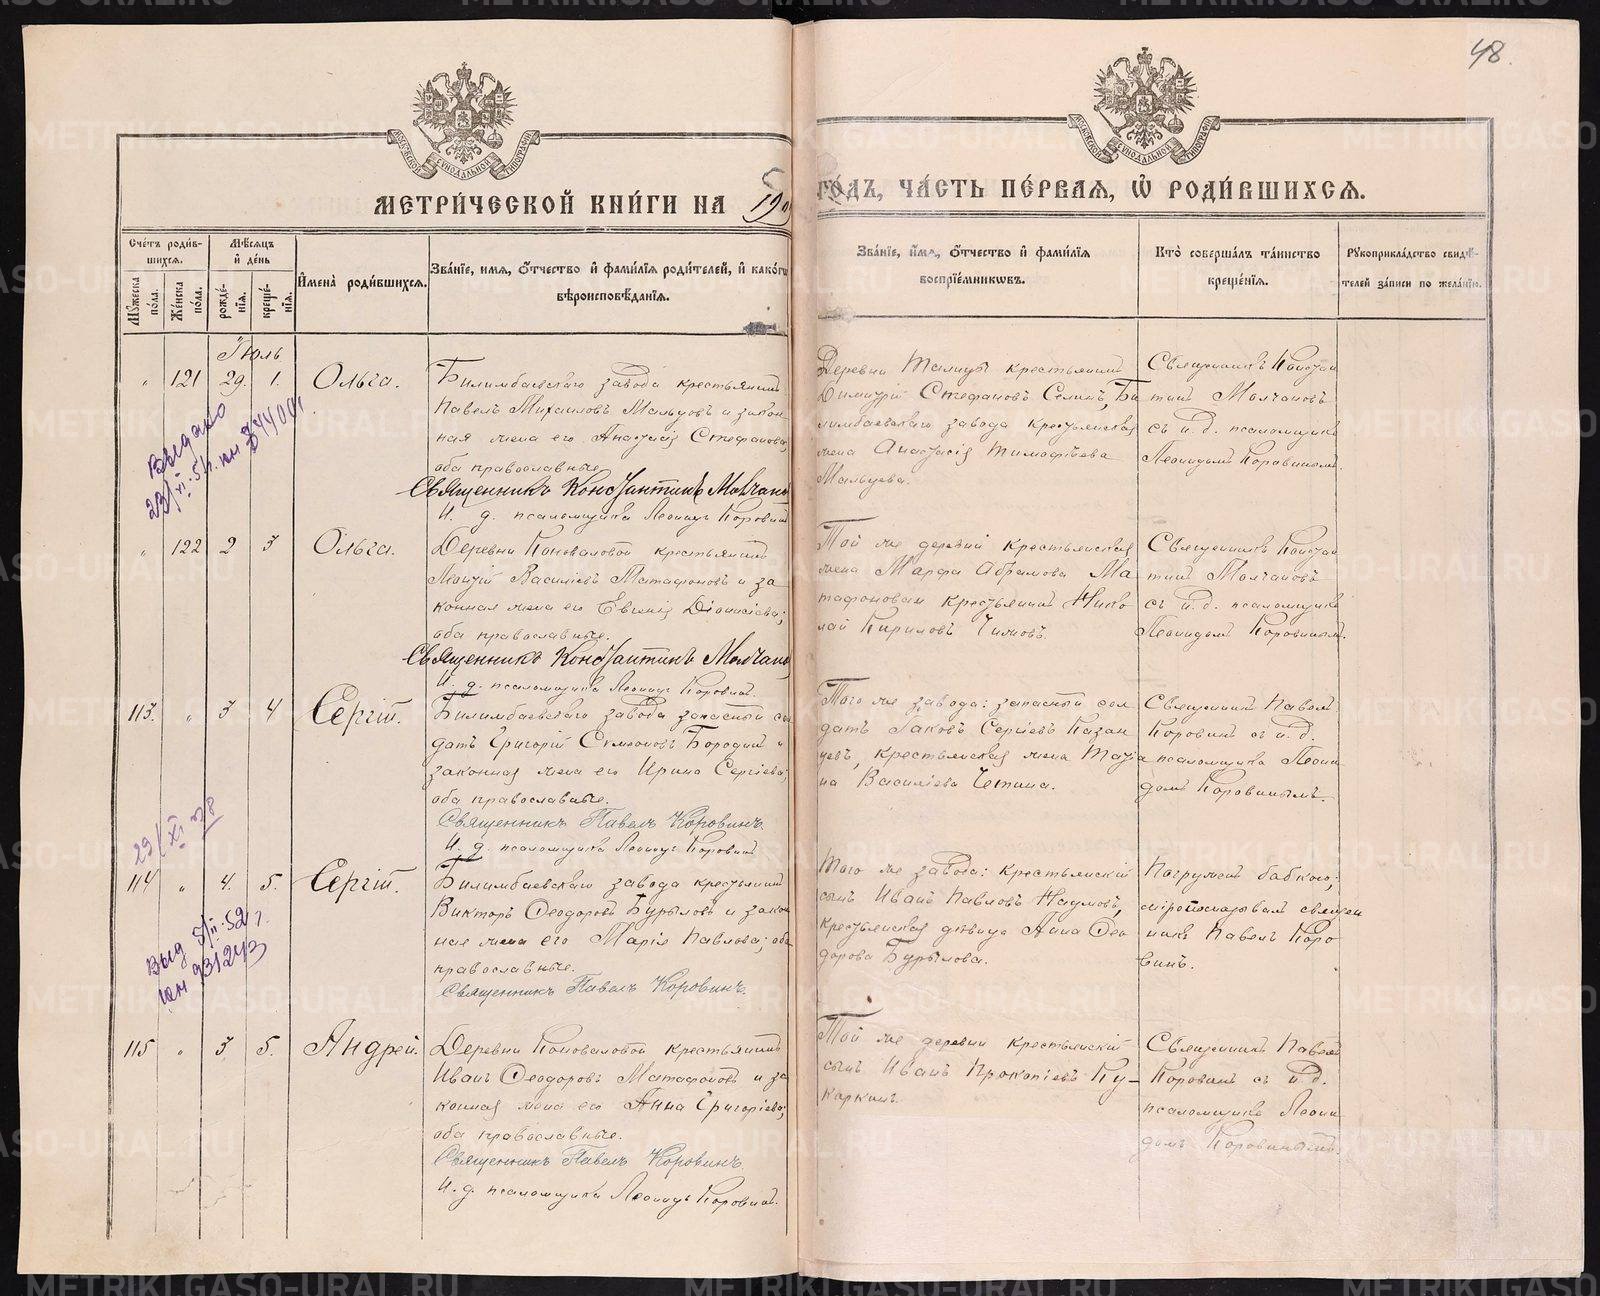 48.
МОСКОВСКОЙ СѴНОДАЛЬНОЙ ТИПОГРАФІИ
МОСКОВСКОЙ СѴНОДАЛЬНОЙ ТИПОГРАФІИ
МЕТРИ́ЧЕСКОЙ КНИ́ГИ НА 190
ГО́ДЪ, ЧА́СТЬ ПЕ́РВАЯ, Ѡ҆ РОДИ́ВШИХСЯ.
Сче́тъ роди́в-
шихся.
Мꙋ́жеска по́ла.
Же́нска по́ла.
Мѣ́сяцъ
и҆ де́нь
рожде́-
нїя.
креще́-
нїя.
И҆мена̀ роди́вшихся.
Зва́нїе, и́мя, ѻ҆́тчество и҆ фами́лїя роди́телей, и҆ како́гѡ
вѣроисповѣ́данїя.
Зва́нїе, и҆́мя, ѻ҆́тчество и҆ фами́лїя
воспрїе́мникѡвъ.
Кто̀ соверша́лъ та́инство
креще́нїя.
Рꙋкоприкла́дство свидѣ́-
телей за́писи по жела́нїю.
Іюль
" 121 29. 1. Ольга.
Билимбаевскаго завода крестьянинъ
Павелъ Михаиловъ Мальцовъ и закон-
ная жена его Анастасія Стефанова,
оба православные.
Священникъ Константинъ Молчановъ
И. д. псаломщика Леонидъ Коровинъ
Деревни Талицы крестьянинъ
Димитрій Стефановъ Селинъ, Би-
лимбаевскаго завода крестьянская
жена Анастасія Тимофѣева
Мальцева.
Священникъ Констан-
тинъ Молчановъ
съ и. д. псаломщика
Леонидомъ Коровинымъ.
Выдано
" 122 2 3 Ольга.
Деревни Коноваловой крестьянинъ
Леонтій Василіевъ Матафоновъ и за-
конная жена его Евгенія Діонисіева;
оба православные.
Священникъ Константинъ Молчановъ
И. д. псаломщика Леонидъ Коровинъ.
Той же деревни крестьянская
жена Марфа Абрамова Ма-
тафонова и крестьянинъ Нико-
лай Кириловъ
Священникъ Констан-
тинъ Молчановъ
съ и. д. псаломщика
Леонидомъ Коровинымъ.
113. " 3 4 Сергій.
Билимбаевскаго завода запасный сол-
датъ Григорій Симеоновъ Бородинъ и
законная жена его Ирина Сергіева;
оба православные.
Священникъ Павелъ Коровинъ.
И. д. псаломщика Леонидъ Коровинъ
Того же завода: запасный сол-
датъ Іаковъ Сергіевъ Казан-
цевъ, крестьянская жена Татіа-
на Василіева
Священникъ Павелъ
Коровинъ съ и. д.
псаломщика Леони-
домъ Коровинымъ.
29/XI
114 " 4. 5. Сергій.
Билимбаевскаго завода крестьянинъ
Викторъ Ѳеодоровъ Бурыловъ и закон-
ная жена его Марія Павлова; оба
православные.
Священникъ Павелъ Коровинъ.
Того же завода: крестьянскій
сынъ Иванъ Павловъ Наумовъ,
крестьянская дѣвица Анна Ѳео-
дорова Бурылова.
Погруженъ бабкою;
мѵропомазывалъ священ-
никъ Павелъ Коро-
винъ.
Выд 5/II-52 г.
115 " 3. 5. Андрей.
Деревни Коноваловой крестьянинъ
Иванъ Ѳеодоровъ Матафоновъ и за-
конная жена его Анна Григоріева;
оба православные.
Священникъ Павелъ Коровинъ.
И. д. псаломщика Леонидъ Коровинъ.
Той же деревни крестьянскій
сынъ Иванъ Прокопіевъ Ку-
каркинъ.
Священникъ Павелъ
Коровинъ съ и. д.
псаломщика Леони-
домъ Коровинымъ.
METRIKI.GASO-URAL.RU